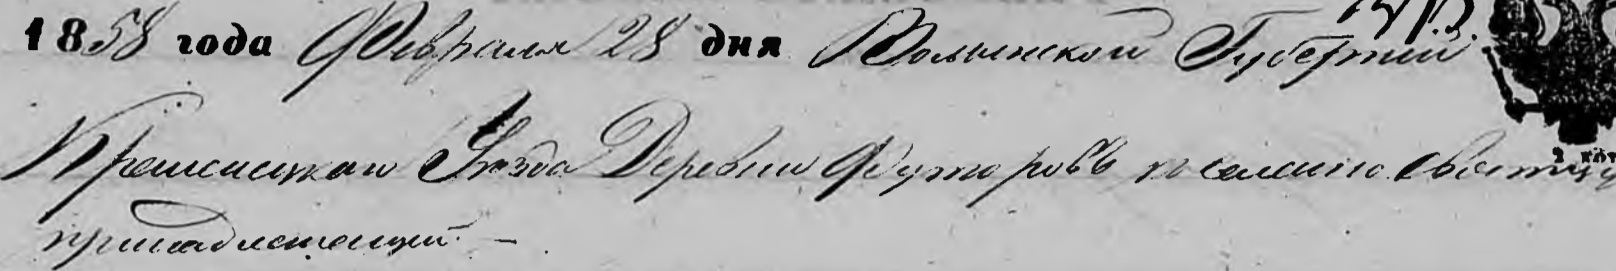 1858 года Февраля 28 дня Волынской Губернии
Кременецкаго Уезда Деревни Футоровъ к селению
принадлежащей. —